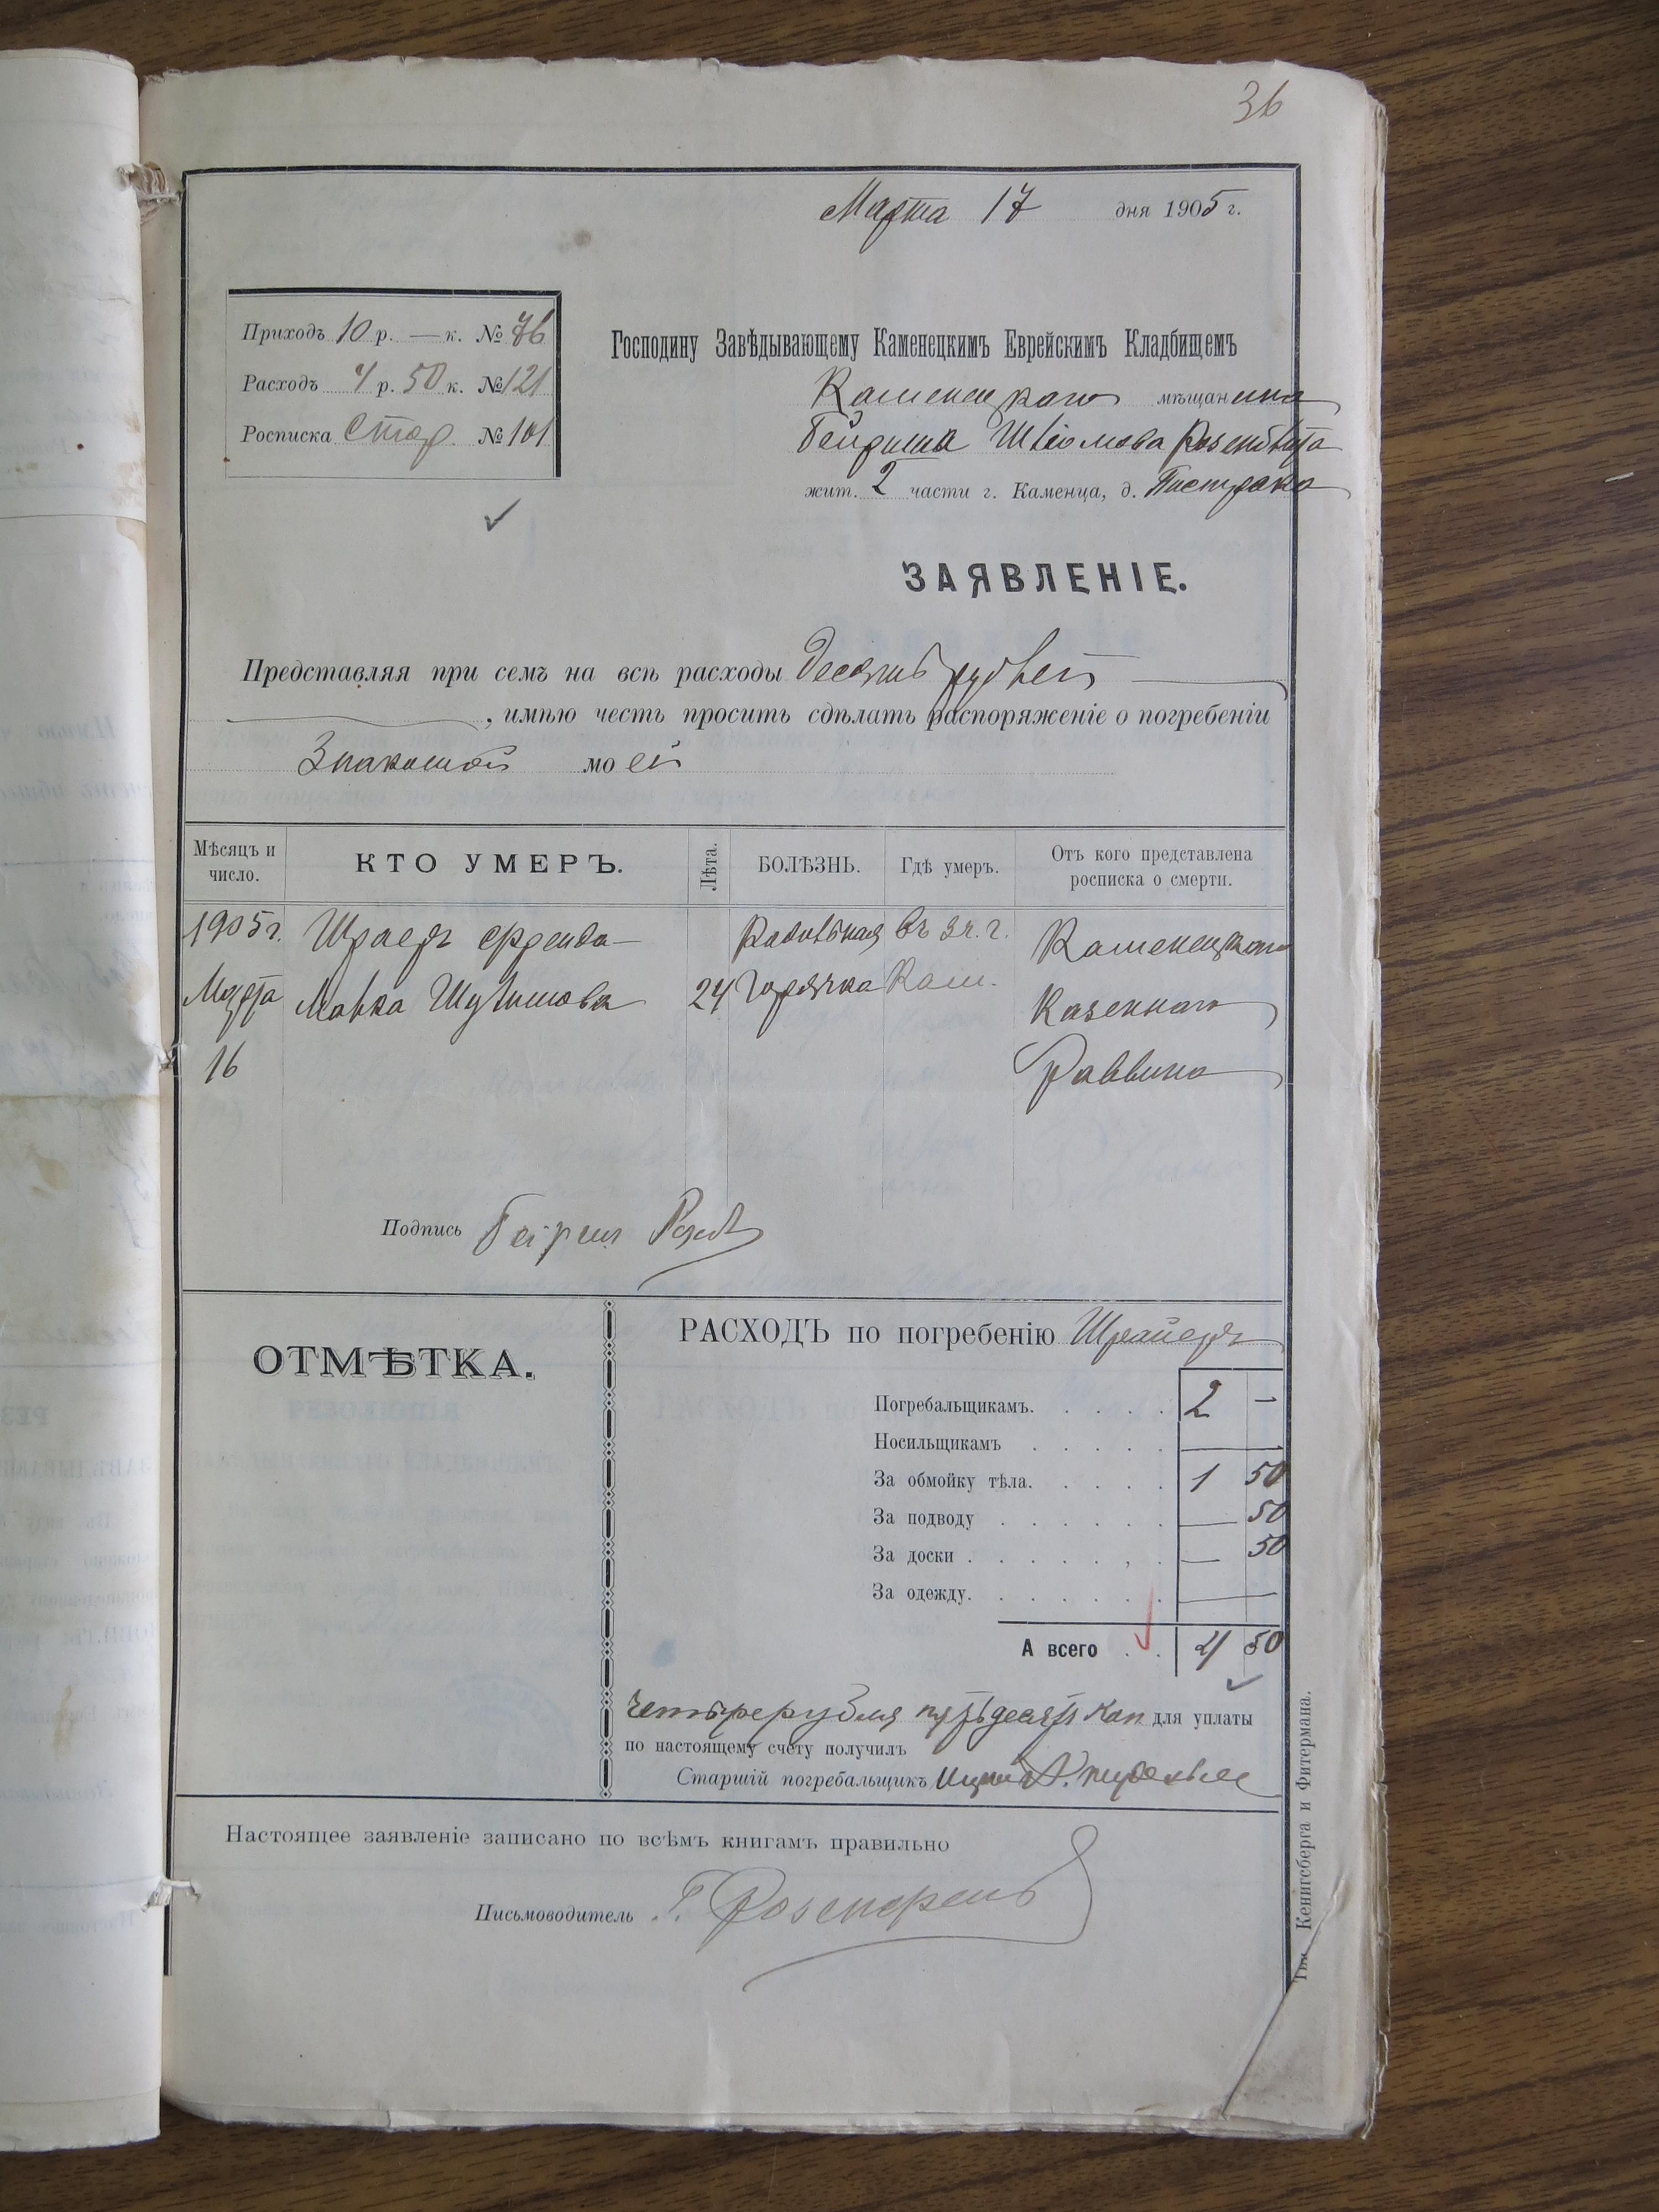 36
Марта 17 дня 1905 г.
Приходъ 10 р. — к. № 76
Расходъ 4 р. 50 к. № 121
Росписка Стар. № 101
Господину Завѣдывающему Каменецкимъ Еврейскимъ Кладбищемъ
Каменецкого мѣщанина
Гейриха
жит. 2 части г. Каменца, д.
ЗАЯВЛЕНІЕ.
Представляя при семъ на всѣ расходы десять рублей
, имѣю честь просить сдѣлать распоряженіе о погребеніи
Знакомой моей
Мѣсяцъ и число. КТО УМЕРЪ. Лѣта. БОЛѢЗНЬ. Гдѣ умеръ. Отъ кого представлена росписка о смерти.
1905 г. Шраеръ въ Каменецкаго
Марта 24 Горячка Кам. Казеннаго
16 Раввина
Подпись
ОТМѢТКА.
РАСХОДЪ по погребенію Шрайеръ
Погребальщикамъ. 2 —
Носильщикамъ —
За обмойку тѣла. 1 50
За подводу — 50
За доски — 50
За одежду. —
А всего 4 50
Четыре рубля пятьдесят коп для уплаты
по настоящему счету получилъ
Старшій погребальщикъ
Настоящее заявленіе записано по всѣмъ книгамъ правильно
Письмоводитель Г.
Тип. Кенигсберга и Фитермана.